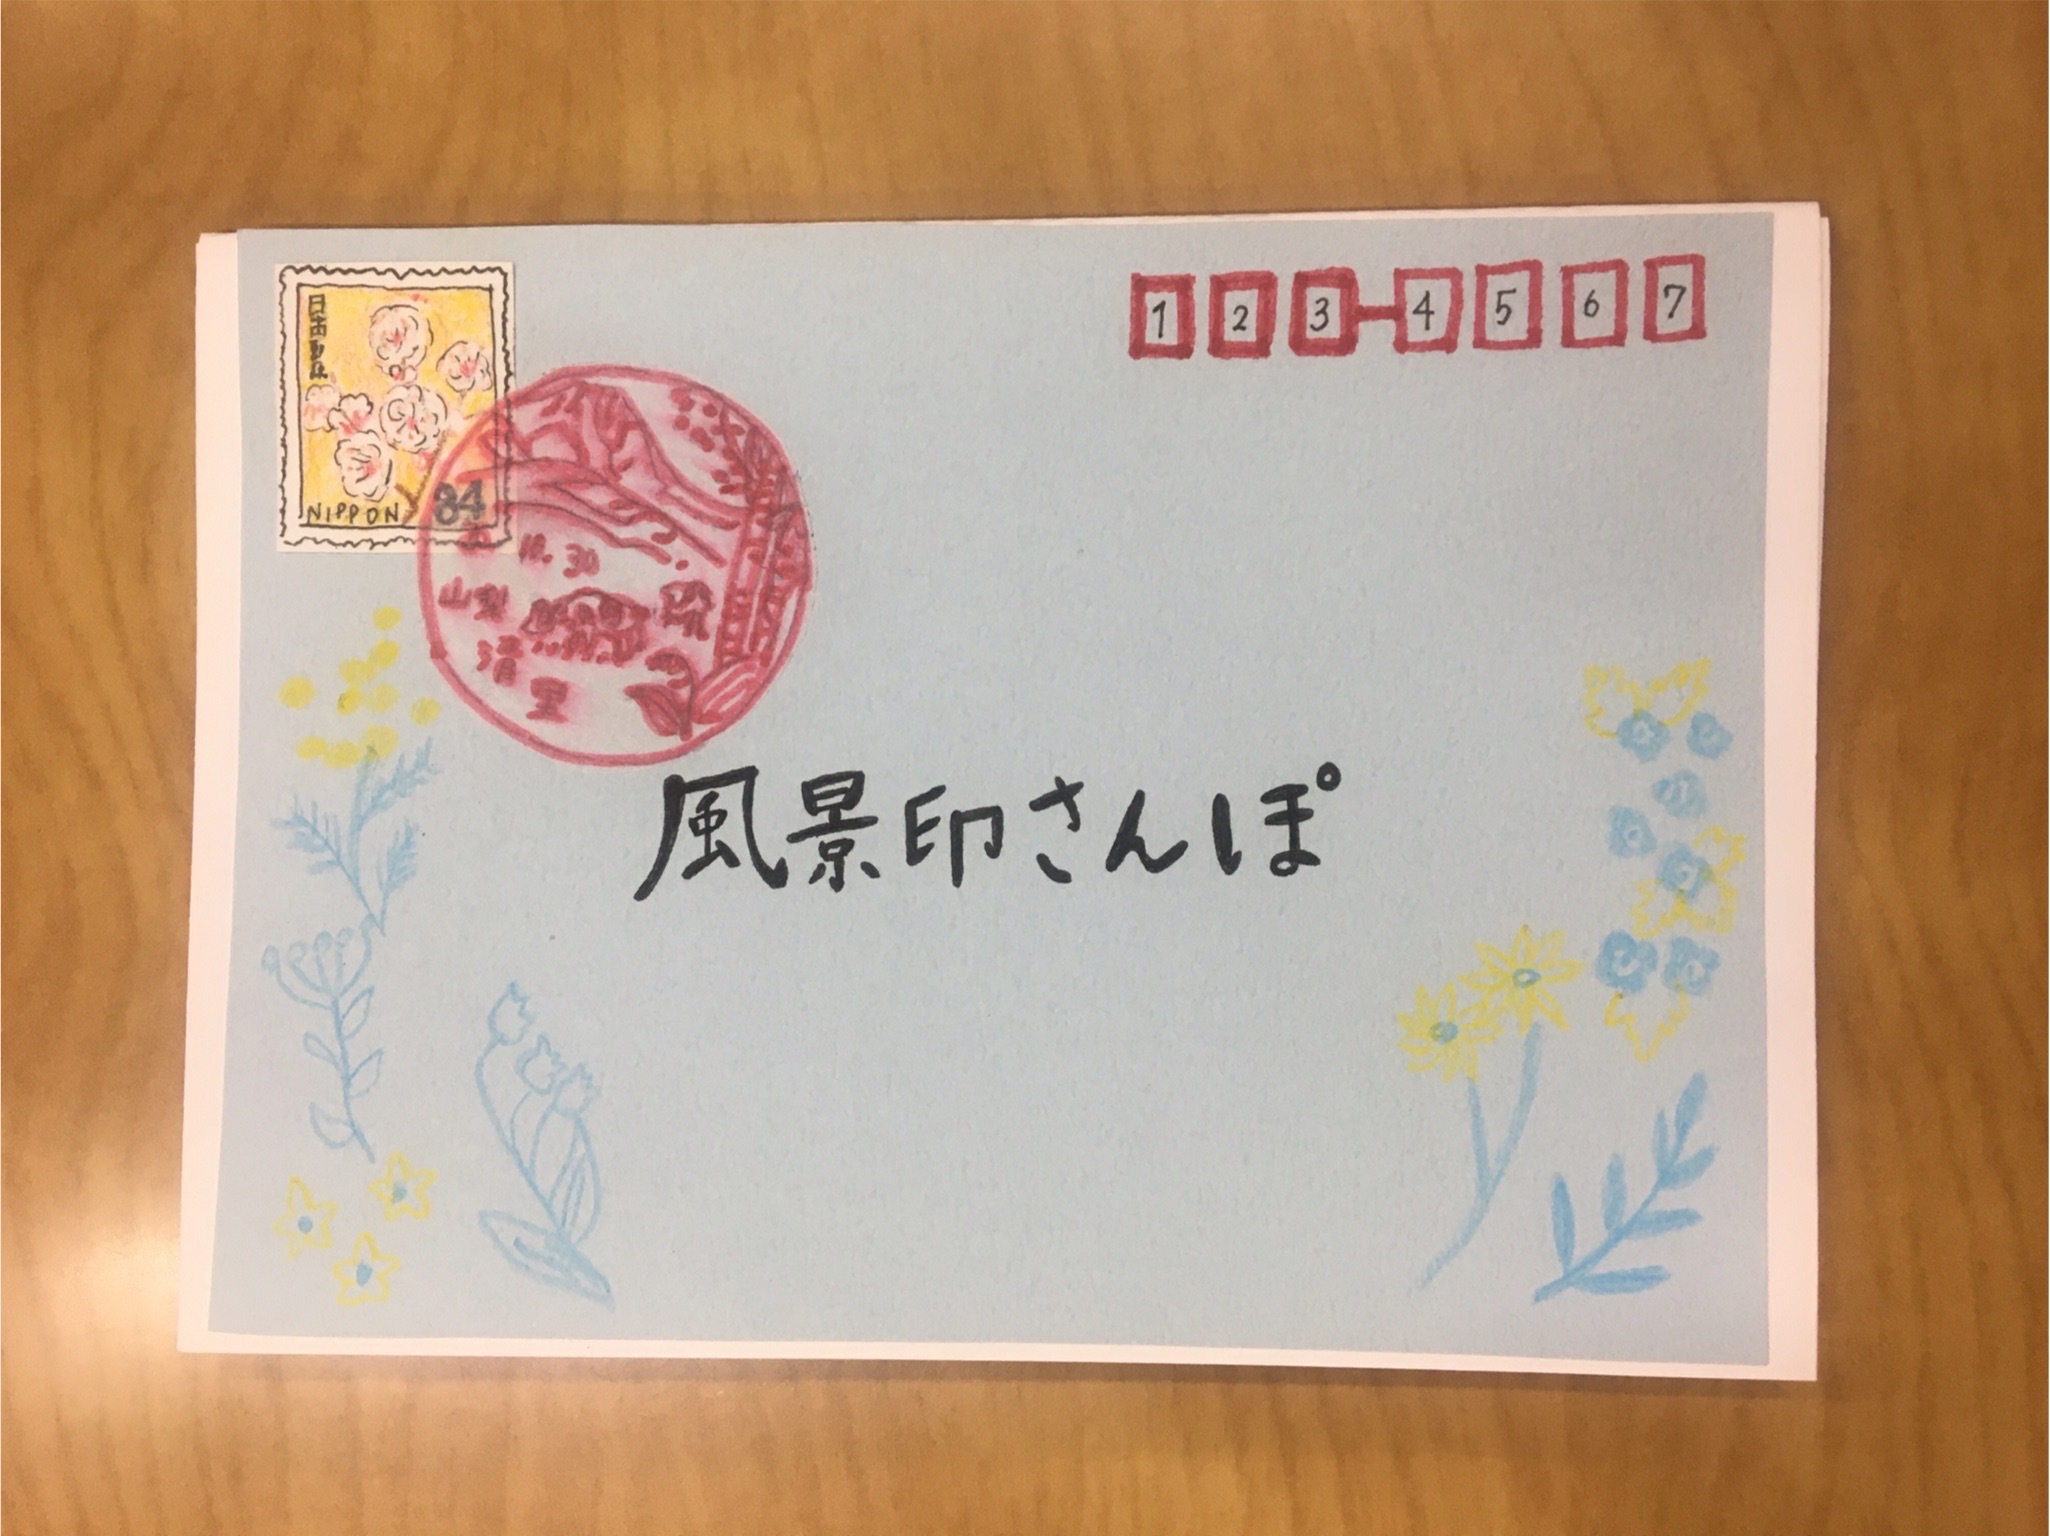 日本郵便
NIPPON 84
1 2 3 4 5 6 7
10. 30
山梨
清里
風景印さんぽ